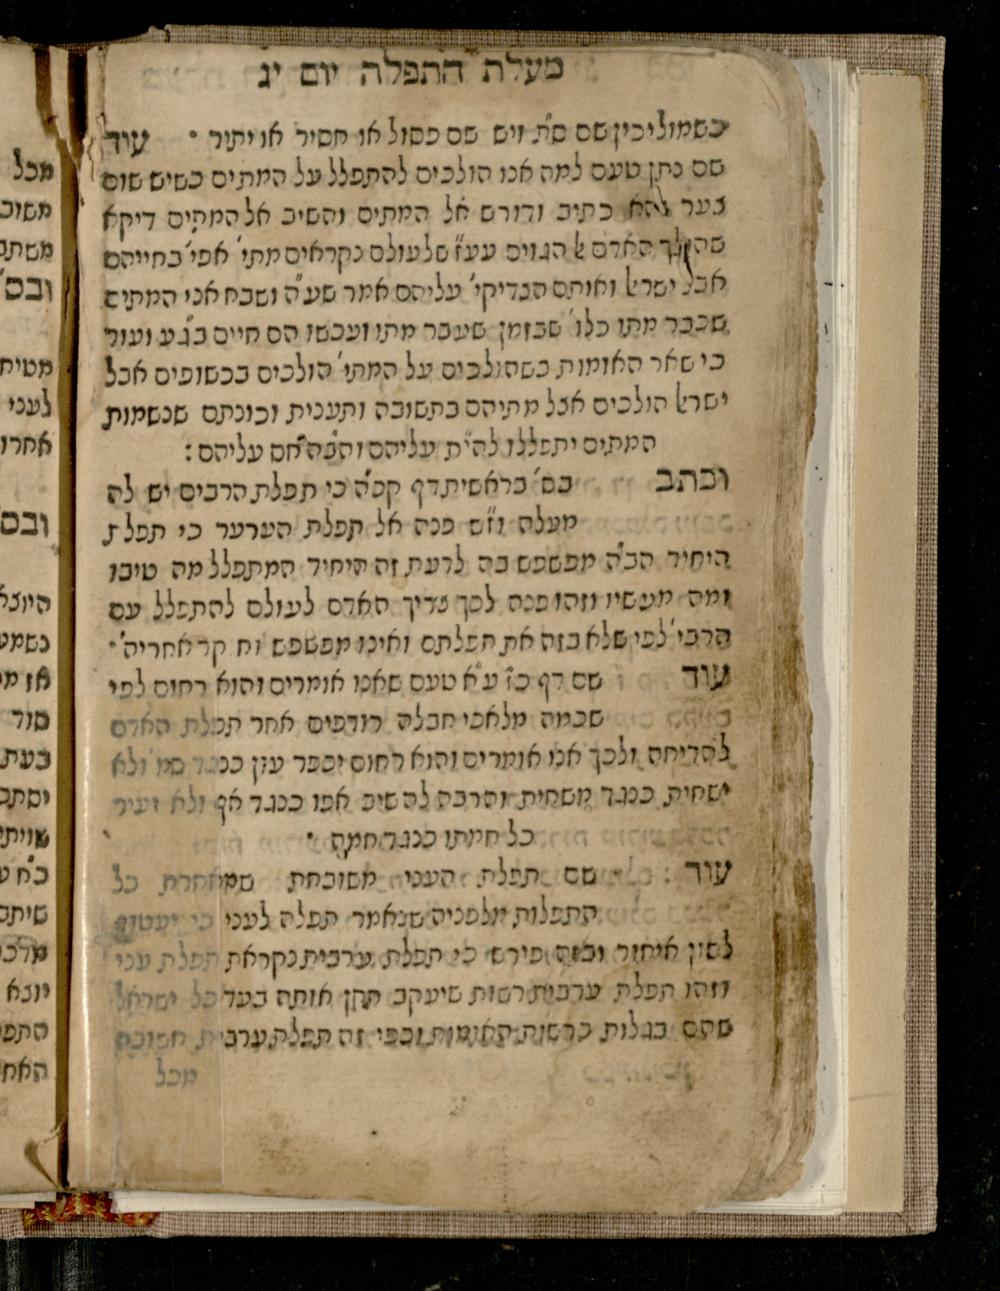 מעלת התפלה יום יג
כשמוליכין שם ס"ת ויש שם פסול או חסיר או יתיר · עוד
שם נתן טעם למה אנו הולכים להתפלל על המתים כשיש שום
צער והא כתיב ודורש אל המתים והשיב אל המתים דיקא
האדם הגוים עע"ז שלעולם נקראים מתי' אפי' בחייהם
אבל ישראל ואותם הצדיקי' עליהם אמר שע"ה ושבח אני המתים
שכבר מתו כלו' שבזמן שעבר מתו ועכשו הם חיים בג"ע ועוד
כי שאר האומות כשהולכים על המתי' הולכים בכשופים אבל
ישראל הולכים אצל מתיהם בתשובה ותענית וכונתם שנשמות
המתים יתפללו לה"ית עליהם והב"ה חס עליהם :
וכתב בס' בראשית דף קס"ה כי תפלת הרבים יש לה
מעלה וז"ש פנה אל תפלת הערער כי תפלת
היחיד הב"ה מפשפש בה לדעת זה היחיד המתפלל מה טיבו
ומה מעשיו וזהו פנה לכך צריך האדם לעולם להתפלל עם
הרבי' לפי שלא בזה את תפלתם ואינו מפשפש וח קר אחריה' ·
עוד שם דף כ"ז ע"א טעם שאנו אומרים והוא רחום לפי
שכמה מלאכי חבלה רודפים אחר תפלת האדם
להדיחה ולכך אנו אומרים והוא רחום יכפר עון כנגד סמ' ולא
ישחית כנגד משחית והרבה להשיב אפו כנגד אף ולא יעיר
כל חמתו כנגד חמה ·
עוד שם תפלת העני משובחת שמאחרת כל
התפלות מלפניה שנאמר תפלה לעני כי יעטוף
לשון איחור ובזה פירש כי תפלת ערבית נקראת תפלת עני
וזהו תפלת ערבית רשות שיעקב תקן אותה בעד כל ישראל
שהם בגלות ברשות האומות וכפי זה תפלת ערבית חשובה
מכל